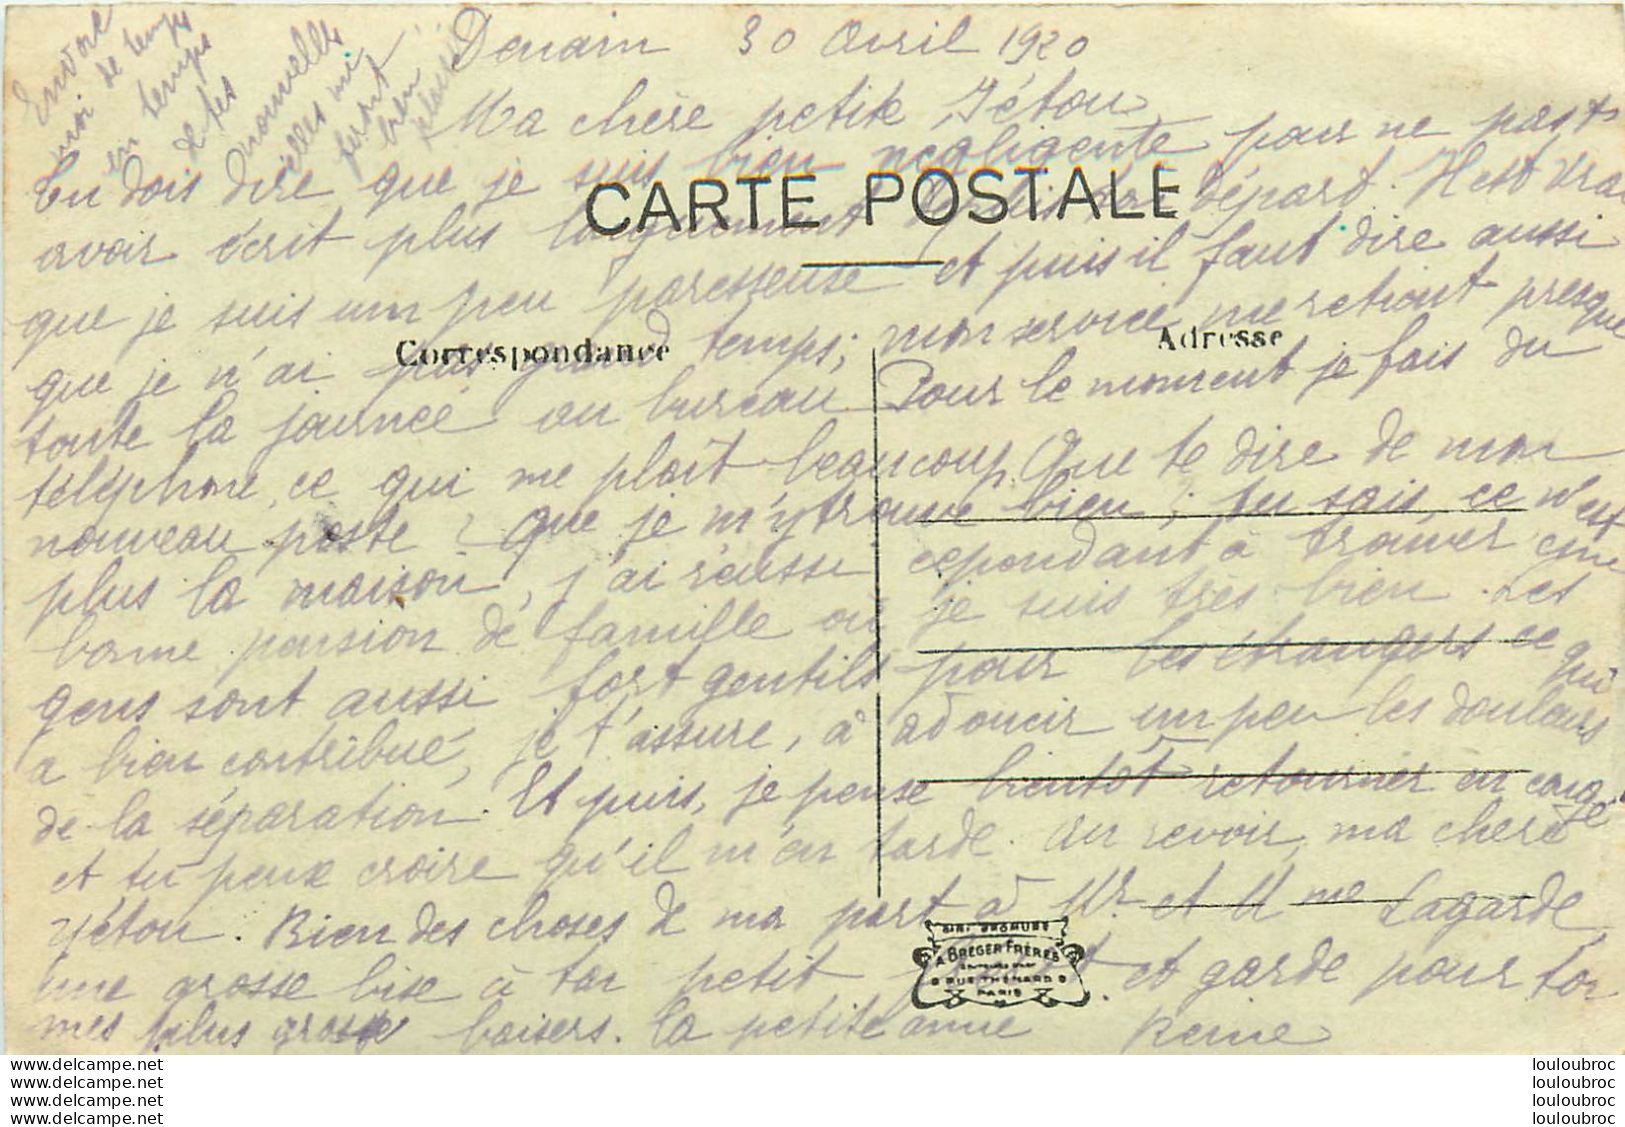 Envoie
moi de temps
en temps
de tes
nouvelles
elles me
feront
bien
plaisir
Denain 30 Avril 1920
Ma chère petite Yétou
Tu dois dire que je suis bien négligente pour ne pas t'
avoir écrit plus longuement depuis mon départ. Il est vrai
que je suis un peu paresseuse et puis il faut dire aussi
que je n'ai pas grand temps; mon service me retient presque
toute la journée au bureau. Pour le moment je fais du
téléphone, ce qui me plaît beaucoup. Que te dire de mon
nouveau poste? Que je m'y trouve bien; tu sais, ce n'est
plus la maison, j'ai réussi cependant à trouver une
bonne pension de famille où je suis très bien. Les
gens sont aussi fort gentils pour les étrangers ce qui
a bien contribué, je t'assure, à adoucir un peu les douleurs
de la séparation. Et puis, je pense bientôt retourner en congé
et tu peux croire qu'il m'en tarde. Au revoir, ma chère
Yétou. Bien des choses de ma part à Mr. et Mme Lagarde,
une grosse bise à ton petit et garde pour toi
mes plus grosses baisers. Ta petite amie Reine
CARTE POSTALE
Correspondance
Adresse
BROMURE
A. BREGER FRÈRES
9 RUE THÉNARD 9
PARIS
louloubroc louloubroc
louloubroc louloubroc
louloubroc louloubroc
louloubroc louloubroc